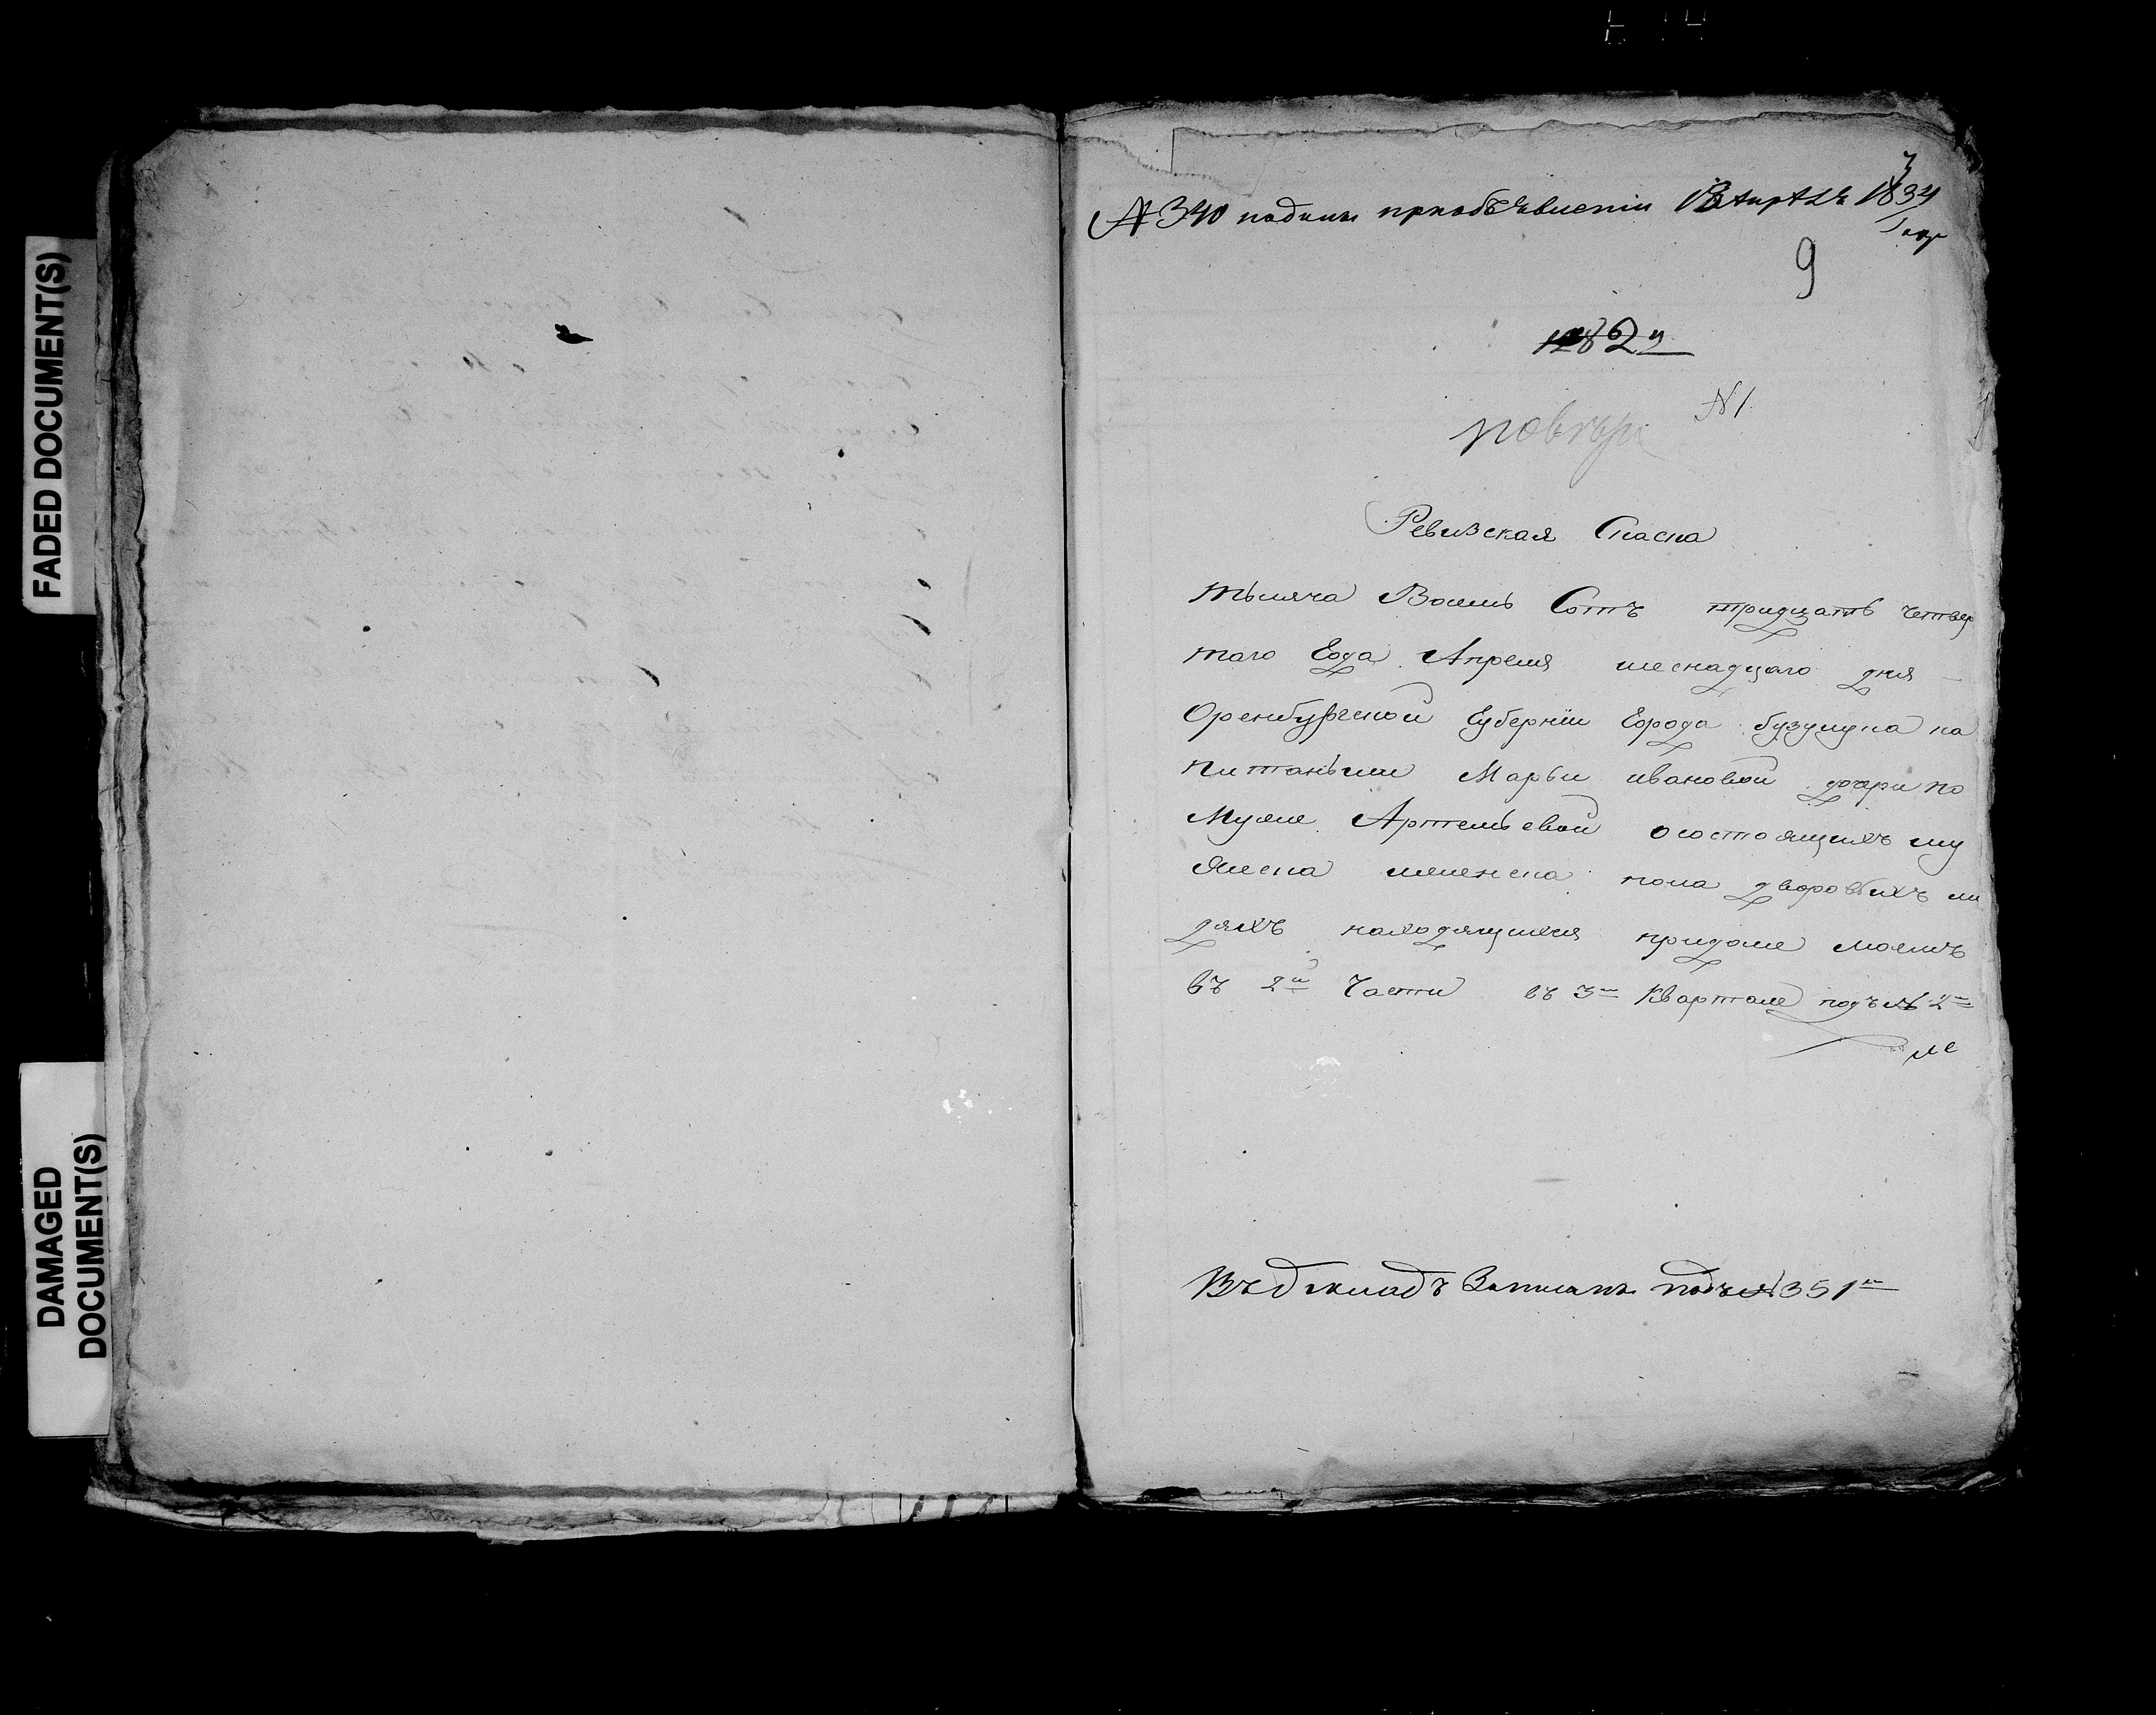 FADED DOCUMENT(S)
DAMAGED
DOCUMENT(S)
№ 340 подана приобъявленіи 18 Апрѣля 1834
3
9
№ 1
Ревизская Скаска
тысяча Восемь Сотъ тридцать четвер
таго Года Апреля шеснадцаго дня
Оренбургской Губерніи Города бузулука ка
питаньши Марьи ивановой дочери по
Муже Артемьевой осостоящихъ му
жеска иженска пола дворовыхъ лю
дяхъ находящихся придоме моемъ
въ 2й Части въ 3м Квартале подъ № 2м
Въ докладъ Записана подъ № 351м